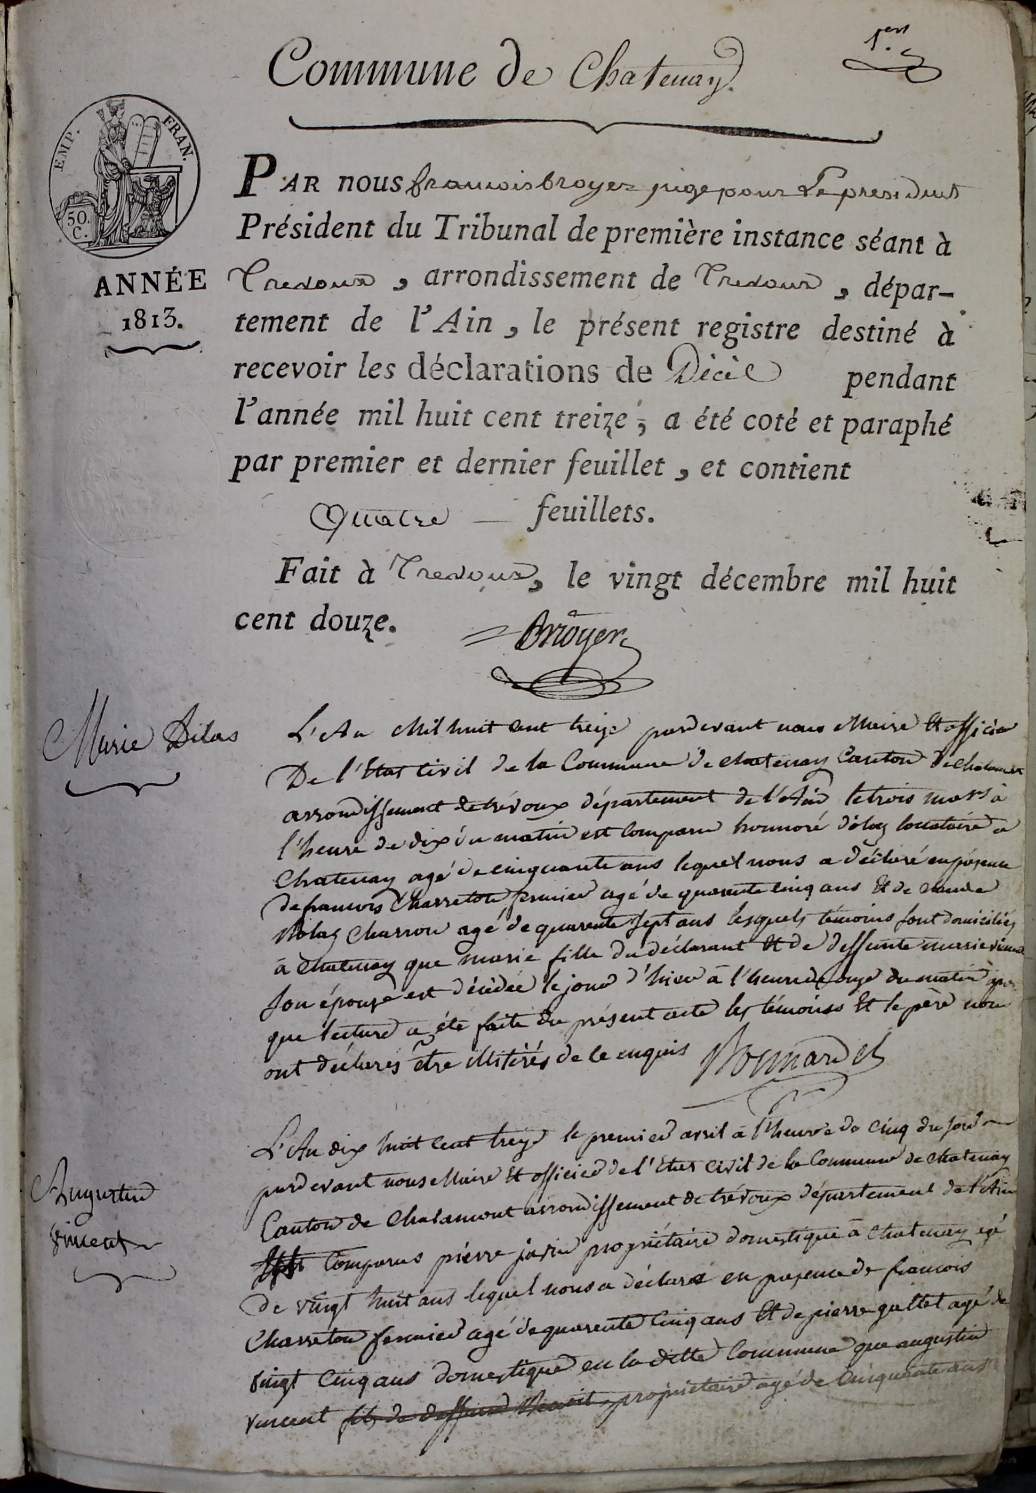 1.er
Commune de Chatenay.
EMP. FRAN.
50. C.
ANNÉE
1813.
PAR nous francois broyer juge pour Le president
Président du Tribunal de première instance séant à
Trevoux, arrondissement de Trevoux, dépar-
tement de l'Ain, le présent registre destiné à
recevoir les déclarations de Décès pendant
l'année mil huit cent treize, a été coté et paraphé
par premier et dernier feuillet, et contient
Quatre feuillets.
Fait à Trevoux, le vingt décembre mil huit
cent douze.
Broyer
Marie Dilas
L'An Mil huit cent treize pardevant nous Maire Et officier
De l'Etat Civil de la Commune de chatenay Canton de chalamont
arrondissement de trévoux département de l'Ain le trois mars à
l'heure de dix du matin est Comparu honnoré locataire a
Chatenay agé de cinquante ans lequel nous a déclaré en présence
de francois Charreton fermier agé de quarente cinq ans Et de
Charron agé de quarente sept ans lesquels témoins sont domiciliés
à chatenay que marie fille du déclarant Et de deffunte marie
son épouse est décédée le jour d'hier à l'heure de onze du matin
que lecture a été faite du présent acte les témoins Et le père nous
ont déclarés être illitérés de ce enquis Bonnardel
Augustin
vincent
L'An dix huit cent treize le premier avril à l'heure de cinq du soir
pardevant nous Maire Et officier de l'Etat Civil de la Commune de chatenay
Canton de chalamont arrondissement de trévoux département de l'Ain
Comparus pierre propriétaire domestique à chatenay agé
de vingt huit ans lequel nous a déclaré en présence de francois
Charreton fermier agé de quarente cinq ans Et de pierre gallet agé de
vingt cinq ans domestique en la ditte Commune que augustin
vincent fils de deffunt Benoit propriétaire agé de cinquante ans